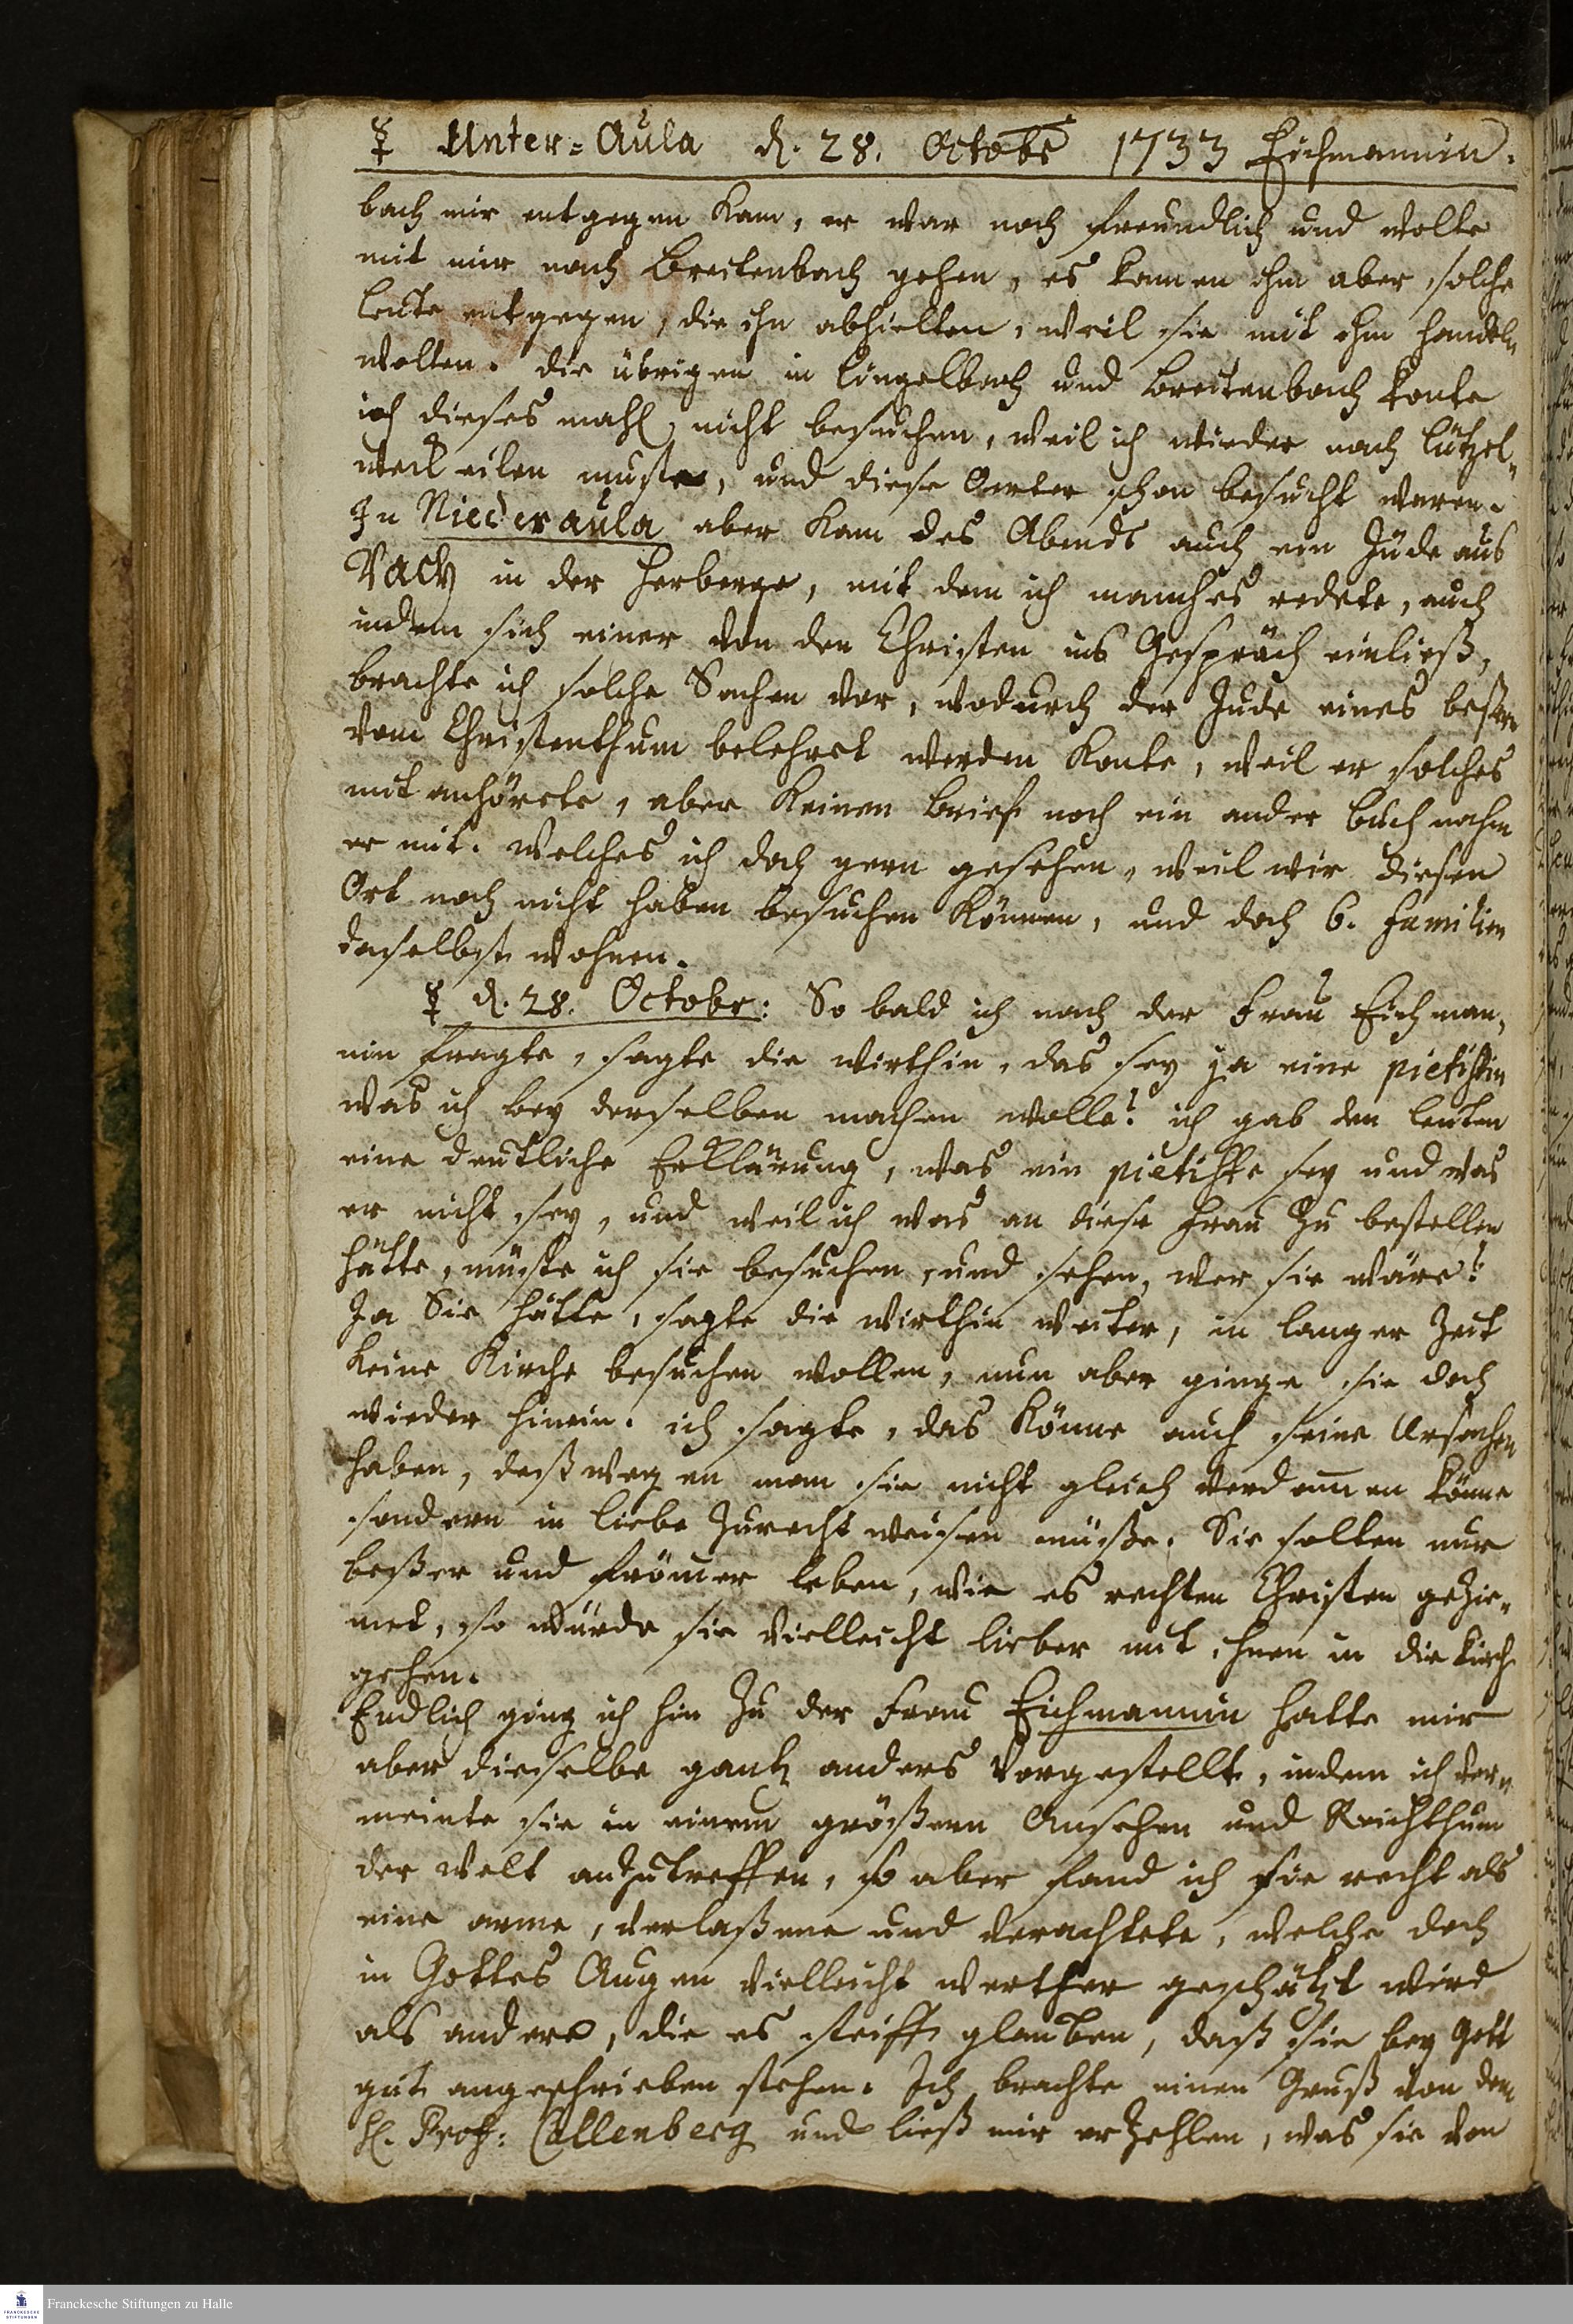 ☿ Unter=Aula d. 28. Octobr 1733 Eichmannin.
bach mir entgegen kam, er war noch freundlich und wolte
mit mir nach Breitenbach gehen, es kamen ihm aber solche
leute entgegen, die ihn abhielten, weil sie mit ihm handeln
wolten. die übrigen in Lingelbach und Breitenbach konte
ich dieses mahl nicht besuchen, weil ich wieder nach Lützel-
weil eilen muste, und diese Oerter schon besucht waren.
In Niederaula aber kam des Abends auch ein Jude aus
Vach in der Herberge, mit dem ich manches redete, auch
indem sich einer von den Christen ins Gespräch einließ,
brachte ich solche Sachen vor, wodurch der Jude eines beßern
vom Christenthum belehret werden konte, weil er solches
mit anhörete, aber keinen Brief noch ein ander buch nahm
er mit. welches ich doch gern gesehen, weil wir diesen
Ort noch nicht haben besuchen können, und doch 6. Familien
daselbst wohnen.
☿ d. 28. Octobr: So bald ich nach der Frau Eichman-
nin fragte, sagte die wirthin, das sey ja eine pietistin
was ich bey derselben machen wolle? ich gab den leuten
eine deutliche Erklärung, was ein pietiste sey und was
er nicht sey, und weil ich was an diese Frau zu bestellen
hätte, müste ich sie besuchen, und sehen, wer sie wäre?
Ja Sie hätte, sagte die wirthin weiter, in langer Zeit
keine Kirche besuchen wollen, nun aber ginge sie doch
wieder hinein. ich sagte, das könne auch seine Ursachen
haben, deßwegen man sie nicht gleich verdammen könne
sondern in liebe zurecht weisen müße. Sie solten nur
beßer und frömer leben, wie es rechten Christen gezie-
met, so würde sie vielleicht lieber mit ihnen in die Kirch
gehen.
Endlich ging ich hin zu der Frau Eichmannin hatte mir
aber dieselbe gantz anders vorgestellt, indem ich ver-
meinte sie in einem größern Ansehen und Reichthum
der welt anzutreffen, so aber fand ich sie recht als
eine arme, verlaßene und verachtete, welche doch
in Gottes Augen vielleicht werther geschätzt wird
als andere, die es steiff glauben, daß sie bey Gott
gut angeschrieben stehen. Ich brachte einen Gruß von dem
H. Prof: Callenberg und ließ mir erzehlen, was sie von
Franckesche Stiftungen zu Halle